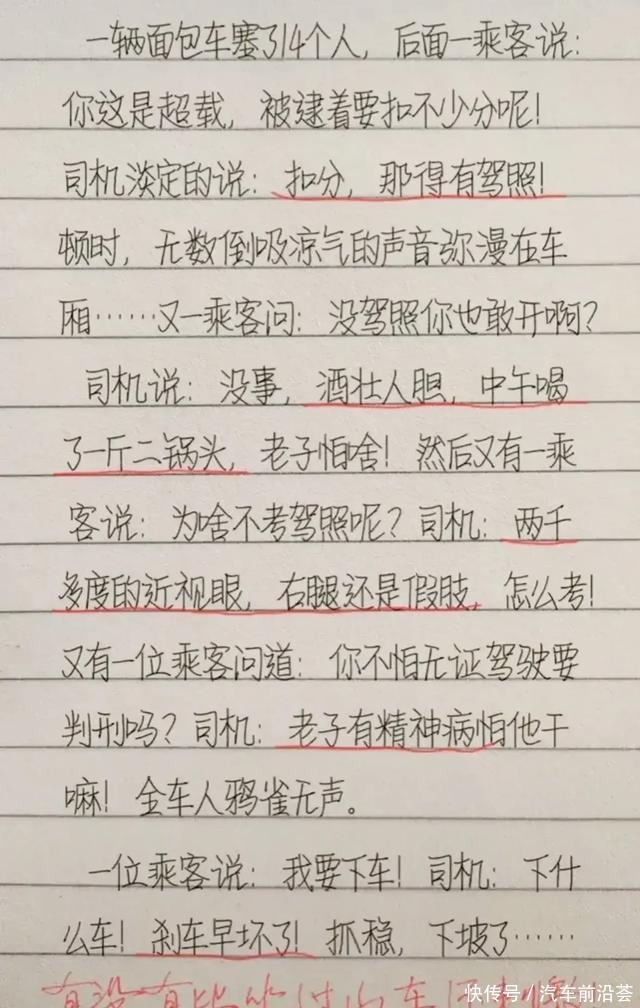 一辆面包车塞了14个人，后面一乘客说：
你这是超载，被逮着要扣不少分呢！
司机淡定的说：扣分，那得有驾照！
顿时，无数倒吸凉气的声音弥漫在车
厢……又一乘客问：没驾照你也敢开啊？
司机说：没事，酒壮人胆，中午喝
了一斤二锅头，老子怕啥！然后又有一乘
客说：为啥不考驾照呢？司机：两千
多度的近视眼，右腿还是假肢，怎么考！
又有一位乘客问道：你不怕无证驾驶要
判刑吗？司机：老子有精神病怕他干
嘛！全车人鸦雀无声。
一位乘客说：我要下车！司机：下什
么车！刹车早坏了！抓稳，下坡了……
有没有比
快传号／汽车前沿荟